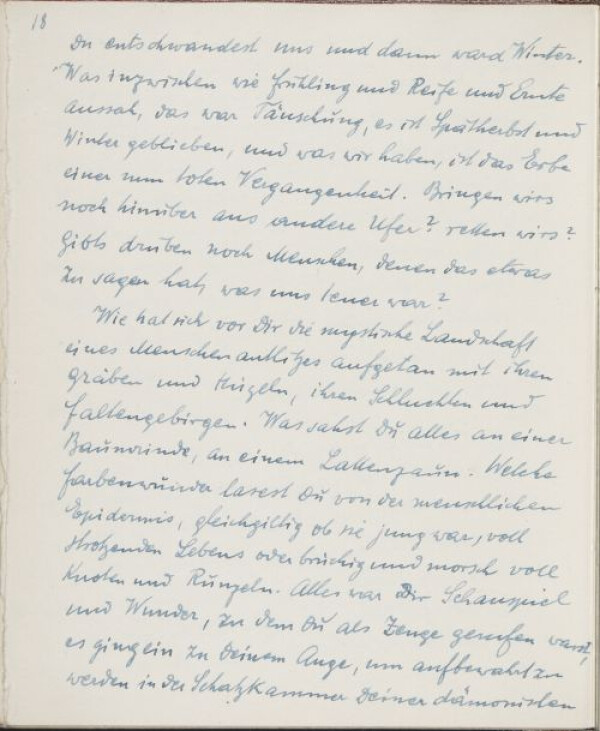 18
Du entschwandest uns und dann ward Winter.
Was inzwischen wie Frühling und Reife und Ernte
aussah, das war Täuschung, es ist Spätherbst und
Winter geblieben, und was wir haben, ist das Erbe
einer nun toten Vergangenheit. Bringen wirs
noch hinüber ans andere Ufer? retten wirs?
Gibts drüben noch Menschen, denen das etwas
zu sagen hat, was uns teuer war?
Wie hat sich vor Dir die mystische Landschaft
eines Menschenantlitzes aufgetan mit ihren
Gräben und Hügeln, ihren Schluchten und
Faltengebirgen. Was sahst Du alles an einer
Baumrinde, an einem Lattenzaun. Welche
Farbenwunder lasest Du von der menschlichen
Epidermis, gleichgiltig ob sie jung war, voll
strotzenden Lebens oder brüchig und morsch voll
Knoten und Runzeln. Alles war Dir Schauspiel
und Wunder, zu dem Du als Zeuge gerufen warst,
es ging ein zu Deinem Auge, um aufbewahrt zu
werden in der Schatzkammer Deiner dämonischen